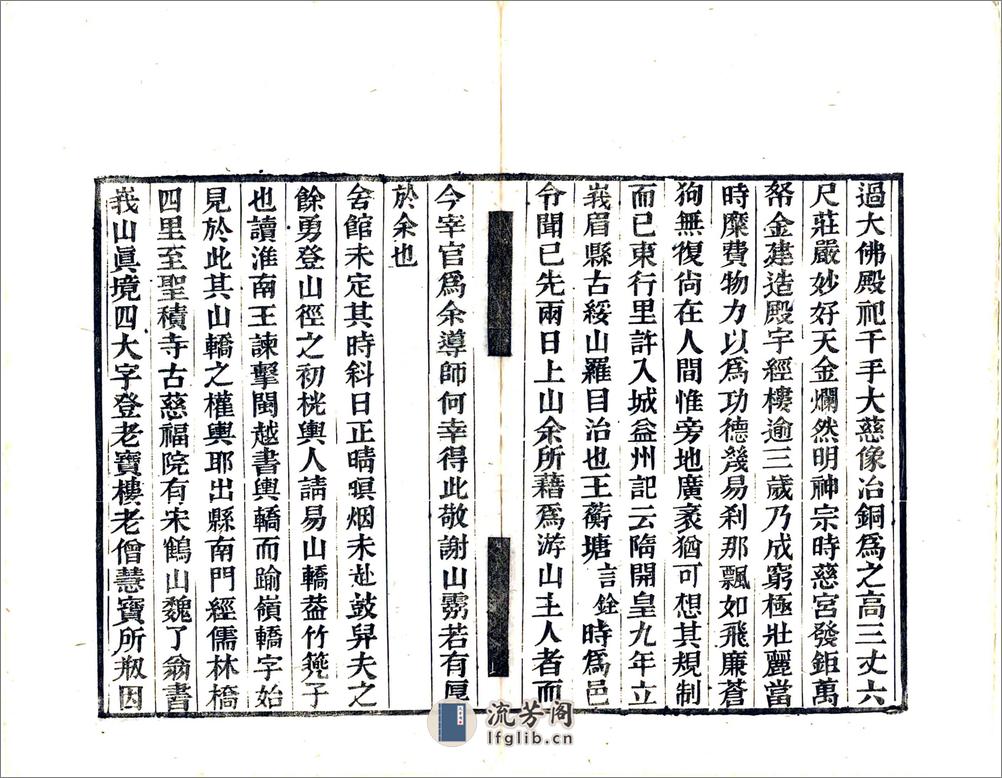 過大佛殿祀千手大慈像冶銅爲之高三丈六
尺莊嚴妙好天金爛然明神宗時慈宮發鉅萬
帑金建造殿宇經樓逾三歲乃成窮極壯麗當
時糜費物力以爲功德幾易刹那飄如飛廉蒼
狗無復尚在人間惟旁地廣袤猶可想其規制
而已東行里許入城益州記云隋開皇九年立
峩眉縣古綏山羅目治也王蘅塘言銓時爲邑
令聞已先兩日上山余所藉爲游山主人者而
今宰官爲余導師何幸得此敬謝山靈若有厚
於余也
舍館未定其時斜日正晴暝烟未赴鼓舁夫之
餘勇登山徑之初桄輿人請易山轎葢竹篼子
也讀淮南王諫擊閩越書輿轎而踰嶺轎字始
見於此其山轎之權輿耶出縣南門經儒林橋
四里至聖積寺古慈福院有宋鶴山魏了翁書
峩山眞境四大字登老寶樓老僧慧寶所刱因
流芳阁
lfglib.cn